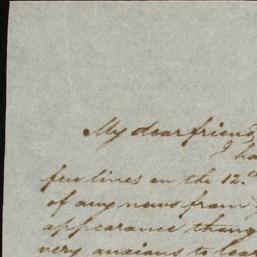 My dear friend
I ha
few lines on the 12.th
of any news from
appearance thang
very anxians to hear